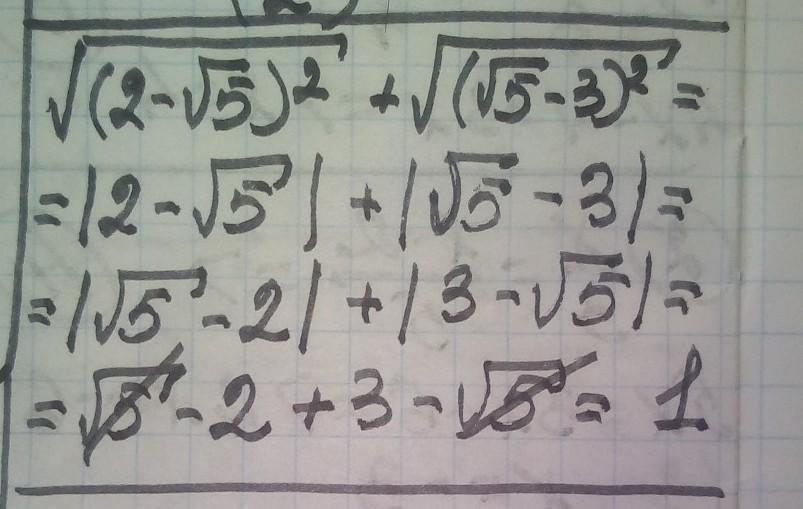 √(2-√5)² + √(√5-3)² =
= |2-√5| + |√5-3| =
= |√5-2| + |3-√5| =
= √5-2+3-√5 = 1